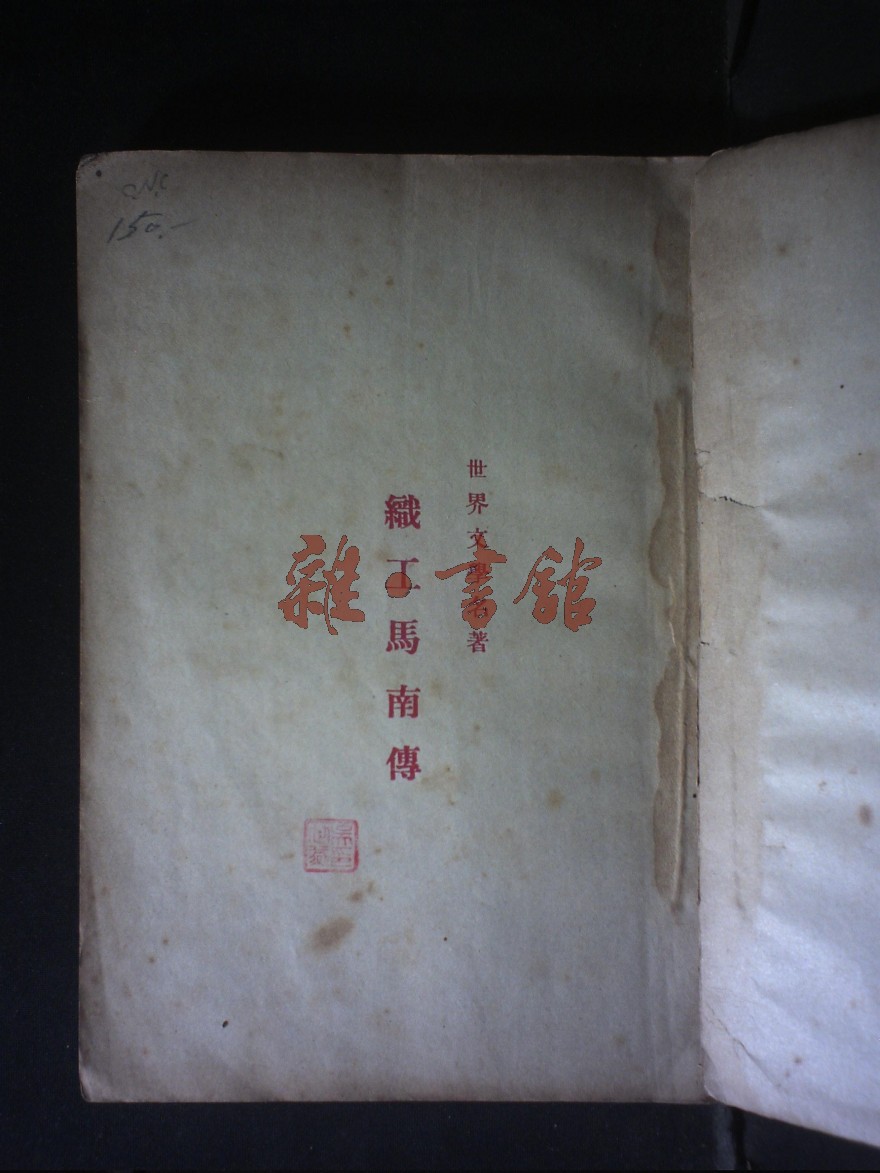 世界文學名著
織工馬南傳
雜·書館
150.-